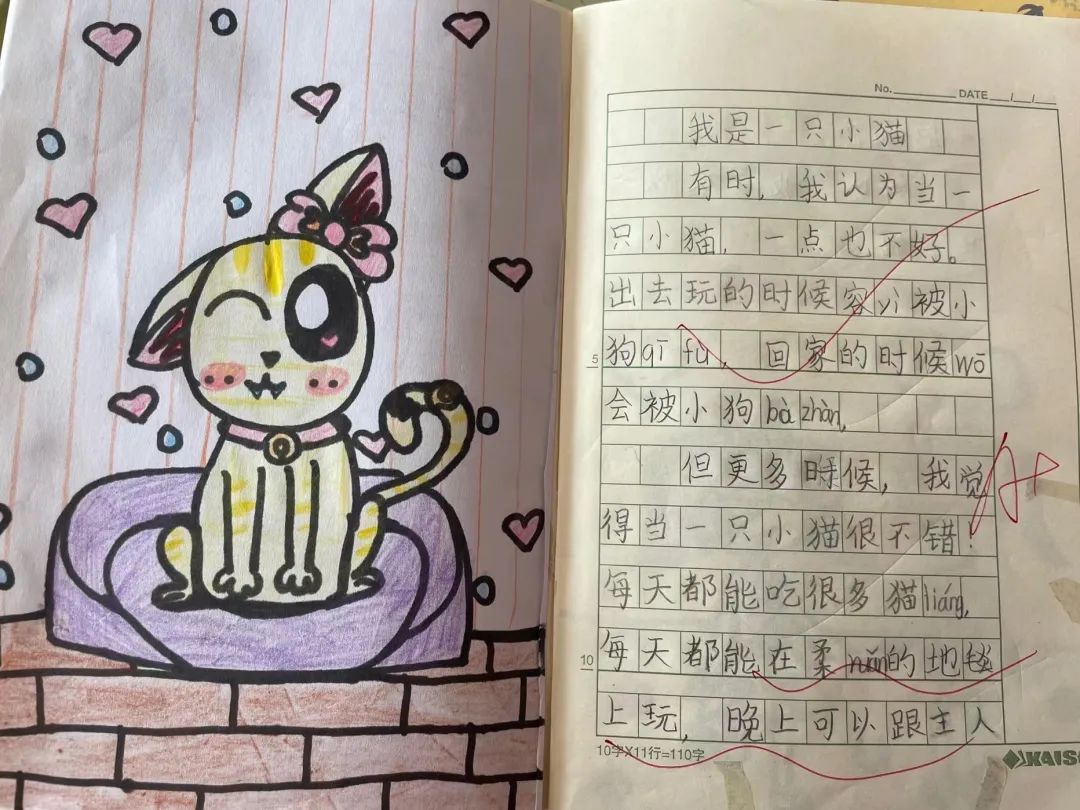 No. DATE / /
我是一只小猫
有时，我认为当一
只小猫，一点也不好。
出去玩的时候容yì被小
狗qī fu，回家的时候wō
会被小狗bà zhàn，
但更多时候，我觉
得当一只小猫很不错！
每天都能吃很多猫liáng，
每天都能在柔nuǎn的地毯
上玩，晚上可以跟主人
5
10
10字X11行=110字
KAISE
A+